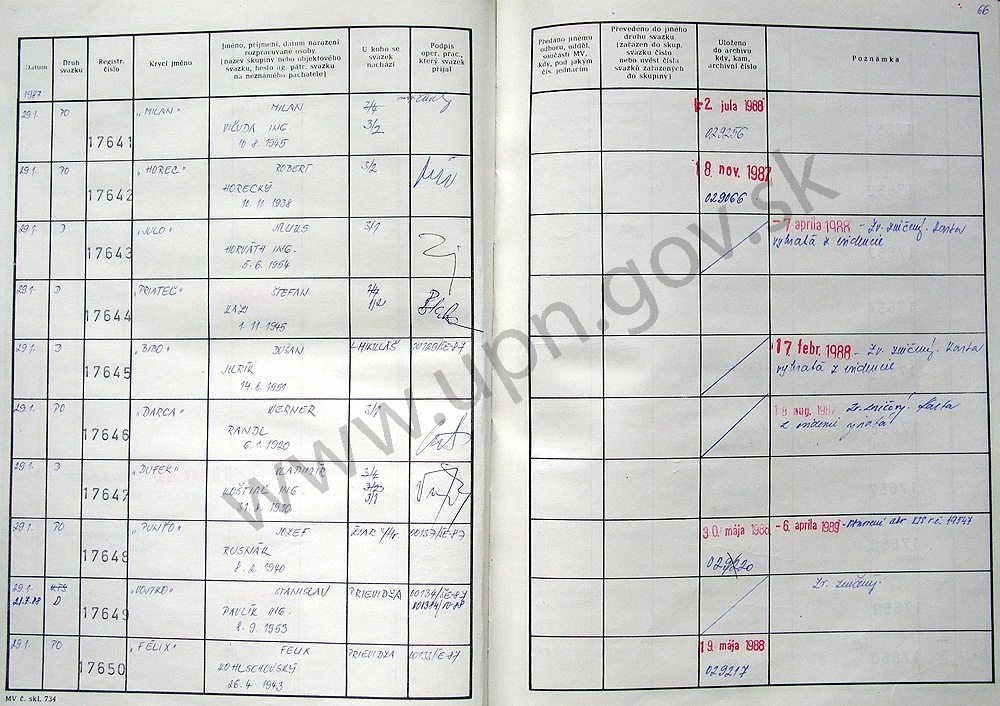 66
Datum
Druh svazku
Registr. číslo
Krycí jméno
Jméno, příjmení, datum narození
rozpracované osoby
(název skupiny nebo objektového
svazku, heslo ag. pátr. svazku
na neznámého pachatele)
U koho se
svazek
nachází
Podpis
oper. prac.,
který svazek
přijal
Předáno jinému
odboru, odděl.
součásti MV,
kdy, pod jakým
čís. jednacím
Převedeno do jiného
druhu svazku
(zařazen do skup.
svazku číslo
nebo uvést čísla
svazků zařazených
do skupiny)
Uloženo
do archivu
kdy, kam,
archivní číslo
Poznámka
1987
29.1. PO 17641 „MILAN" MILAN 3/4
VIĽUDA ING. 3/2
10. 8. 1945
2. jula 1988
029256
29.1. PO 17642 „HOREC" ROBERT 3/2
HORECKÝ
10. 11. 1938
18. nov. 1987
029066
29.1. D 17643 „JULO" JÚLIUS 3/1
HORVÁTH ING.
5. 6. 1954
- 7 apríla 1988 - Zv. zničený. Karta
vybratá z evidencie
29.1. D 17644 „PRIATEĽ" ŠTEFAN
KAZI
1. 11. 1945
29.1. D 17645 „BIBO" DUŠAN L-MIKULÁŠ 00129/ŠE-87
JURÍK
14. 6. 1951
17 febr. 1988 - Zv. zničený. Karta
vybratá z evidencie
29.1. PO 17646 „DARCA" WERNER 3/1
RANDL
6. 1. 1920
18 aug. 1987 Zv. zničený. Karta
z evidencie
29.1. D 17647 „DUFEK" VLADIMÍR 3/4
KOŠTIAL ING.
3/1
1930
29.1. PO 17648 „PUNŤO" JOZEF 00137/ŠE-87
RUSNÁK
8. 2. 1940
30. mája 1988 - 6. apríla 1989
029220
29.1. KTS 17649 „VOJTKO" STANISLAV PRIEVIDZA 00134/ŠE-87
21.7.88 D PAVLÍK ING.
8. 9. 1953
Zv. zničený.
29.1. PO 17650 „FÉLIX" FELIX PRIEVIDZA 00133/ŠE-87
KOHLSCHOVSKÝ
26. 4. 1943
19. mája 1988
029217
MV č. skl. 734
www.upn.gov.sk